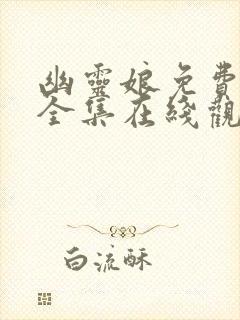 幽靈娘免費
全集在綫觀
白流酥